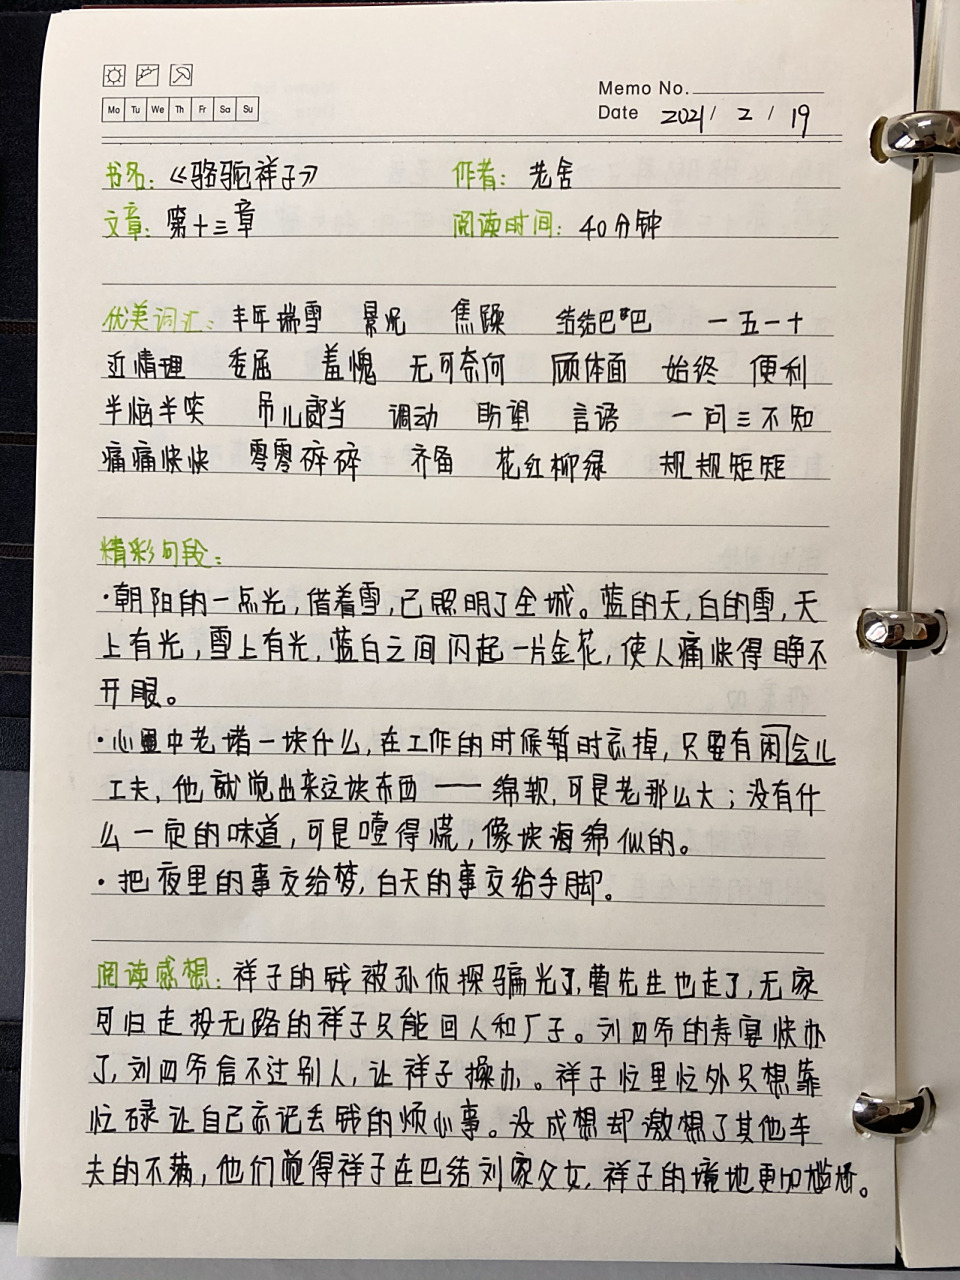 Memo No.
Mo Tu We Th Fr Sa Su
Date 2021 / 2 / 19
书名：《骆驼祥子》 作者：老舍
文章：第十三章 阅读时间：40分钟
优美词汇：丰年瑞雪 景况 焦躁 结结巴巴 一五一十
近情理 委屈 羞愧 无可奈何 顾体面 始终 便利
半恼半笑 吊儿郎当 调动 盼望 言语 一问三不知
痛痛快快 零零碎碎 齐备 花红柳绿 规规矩矩
精彩句段：
·朝阳的一点光，借着雪，已照明了全城。蓝的天，白的雪，天
上有光，雪上有光，蓝白之间闪起一片金花，使人痛快得睁不
开眼。
·心里中老堵一块什么，在工作的时候暂时忘掉，只要有闲会儿
工夫，他就觉出来这块东西——绵软，可是老那么大；没有什
么一定的味道，可是噎得慌，像块海绵似的。
·把夜里的事交给梦，白天的事交给手脚。
阅读感想：祥子的钱被孙侦探骗光了，曹先生也走了，无家
可归走投无路的祥子只能回人和厂子。刘四爷的寿宴快办
了，刘四爷信不过别人，让祥子操办。祥子忙里忙外只想靠
忙碌让自己忘记丢钱的烦心事。没成想却激想了其他车
夫的不满，他们觉得祥子在巴结刘家父女，祥子的境地更加尴尬。